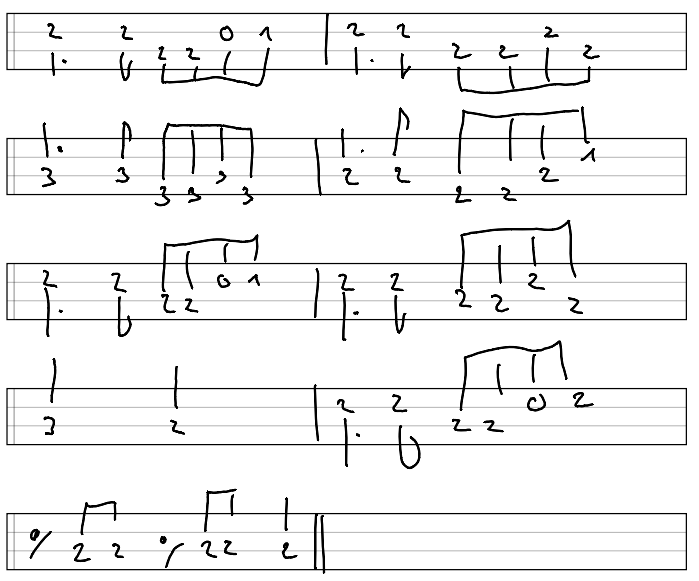 2 2 2 2 0 1 2 2 2 2 2 2
3 3 3 3 3 3 2 2 2 2 2 1
2 2 2 2 0 1 2 2 2 2 2 2
3 2 2 2 2 2 0 2
% 2 2 % 2 2 2